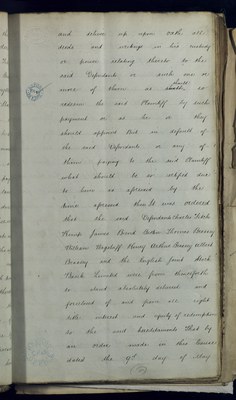 and deliver up upon oath all
deeds and writings in his custody
or power relating thereto to the
said Defendants or such one or
more of them as should
redeem the said Plaintiff by such
payment or as he or they
should appoint But in default of
the said Defendants or any of
them paying to the said Plaintiff
what should be so certified due
to him as aforesaid by the
time aforesaid then It was ordered
that the said Defendants Charles
James Bond Arthur Thomas Brassey
William Henry Arthur Brassey Albert
Brassey and the English Joint Stock
Bank Limited were from thenceforth
to stand absolutely debarred and
foreclosed of and from all right
title interest and equity of redemption
to the said hereditaments That by
an order made in this Cause
dated the 9th day of May